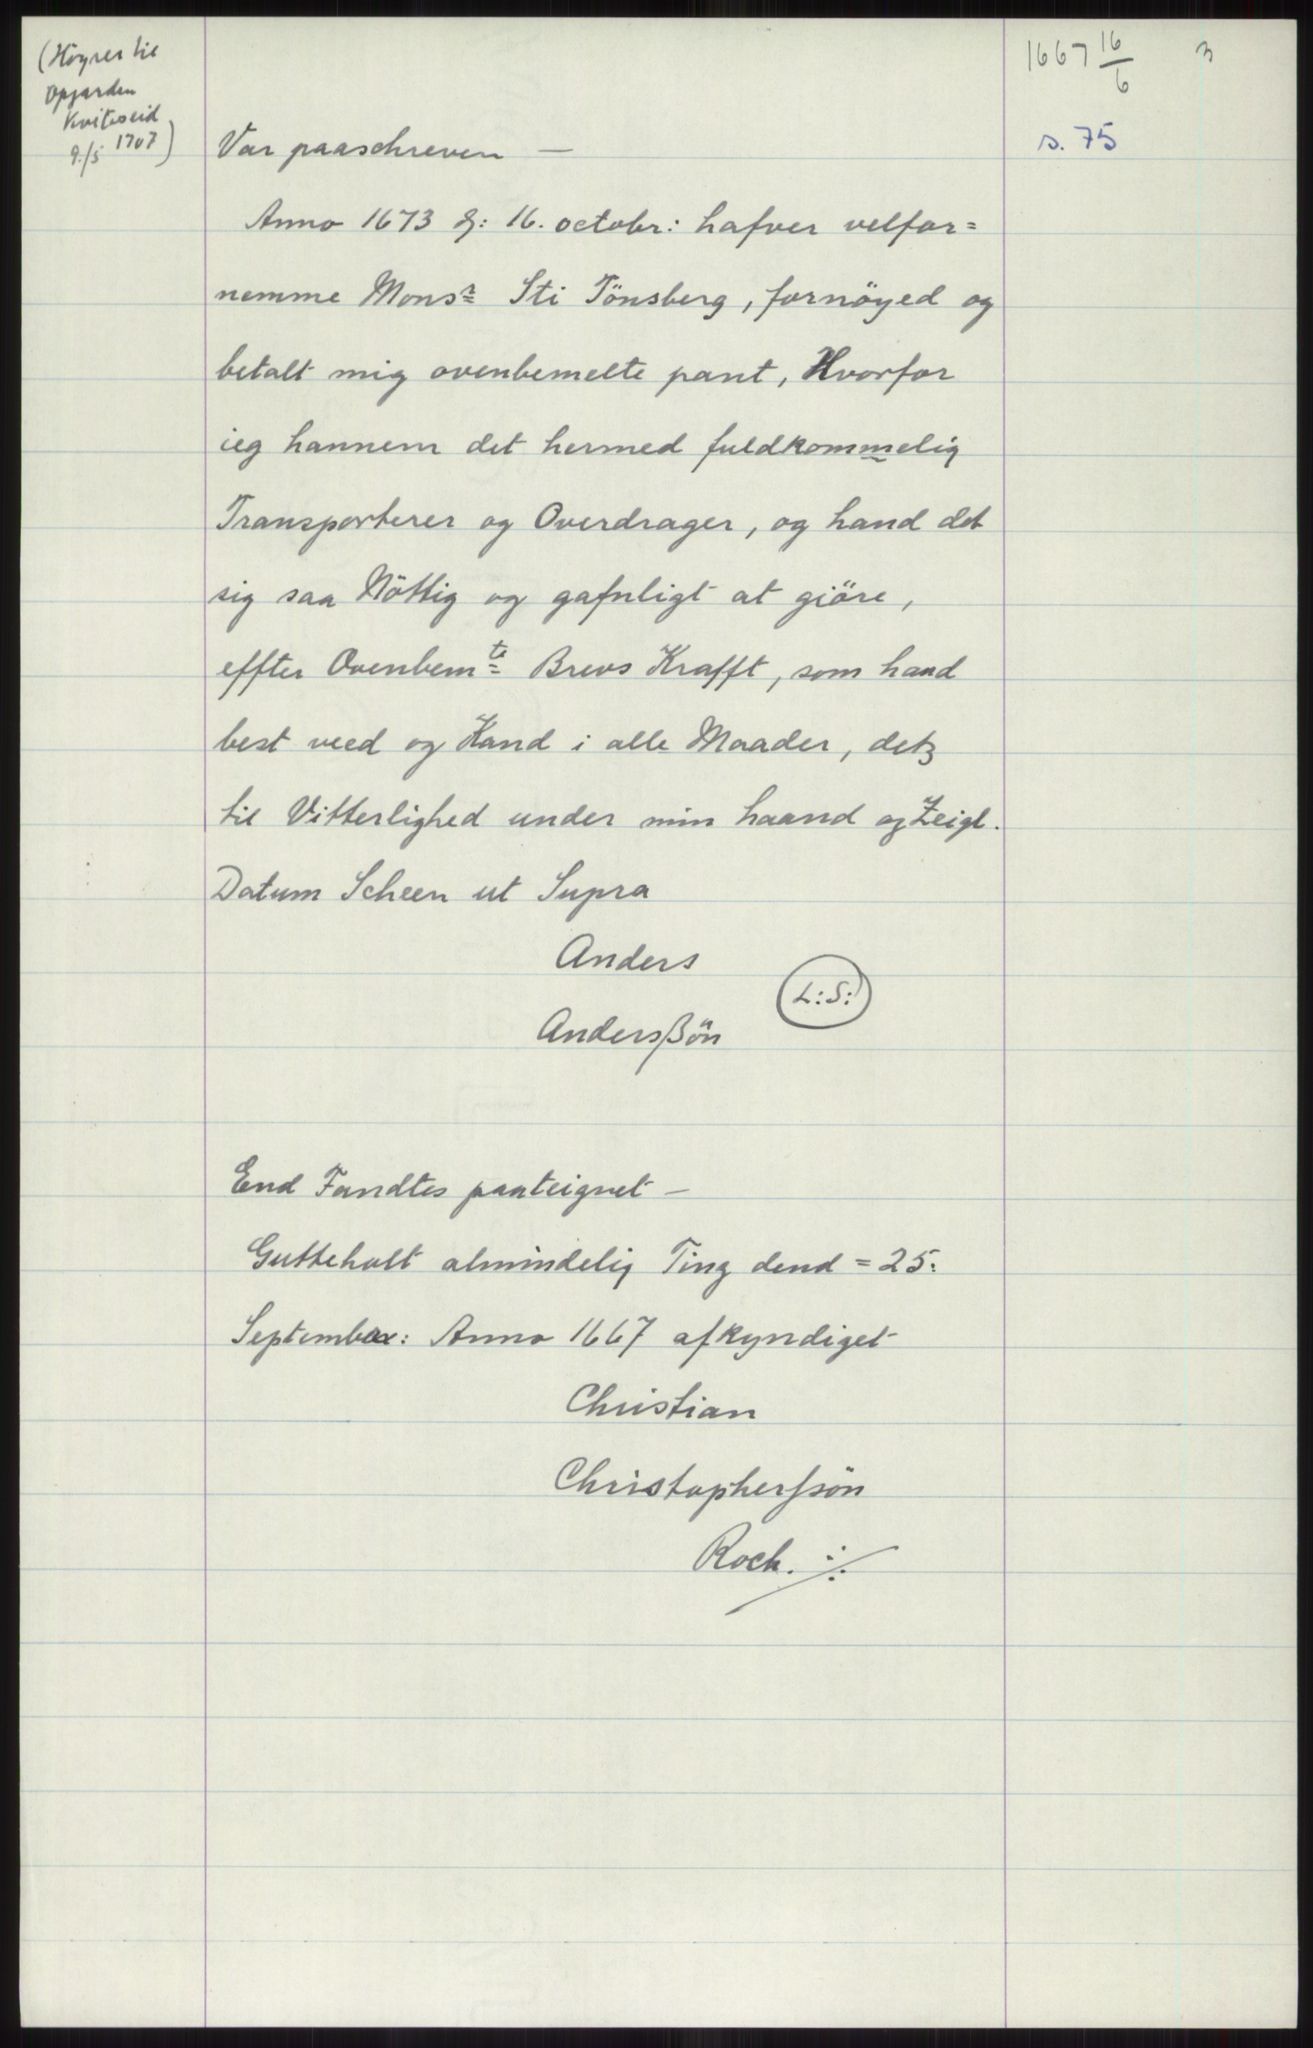 (Høyrer til
Opgarden
Kviteseid
9./5 1707)
1667 16/6
3
s. 75
Var paaschreven —
Anno 1673 d: 16. octobr: hafver velfor=
nemme Monsr Sti Tönsberg, fornöyed og
betalt mig ovenbemelte pant, Hvorfor
ieg hannem det hermed fuldkommelig
Transporterer og Overdrager, og hand det
sig saa Nöttig og gafnligt at giöre,
effter Ovenbemte Brevs Krafft, som hand
best veed og Kand i alle Maader, detz
til Vitterlighed under min haand og Zeigl.
Datum Scheen ut Supra
Anders
Andersßön
L:S:
End Fandtes paateignet —
Gutteholt almindelig Ting dend = 25:
September: Anno 1667 afkyndiget
Christian
Christopherssön
Roch. ./.